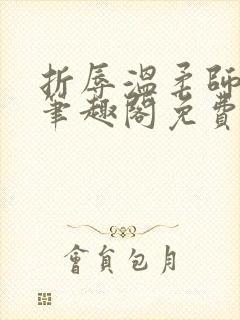 折辱温柔師
筆趣閣免費
會員包月